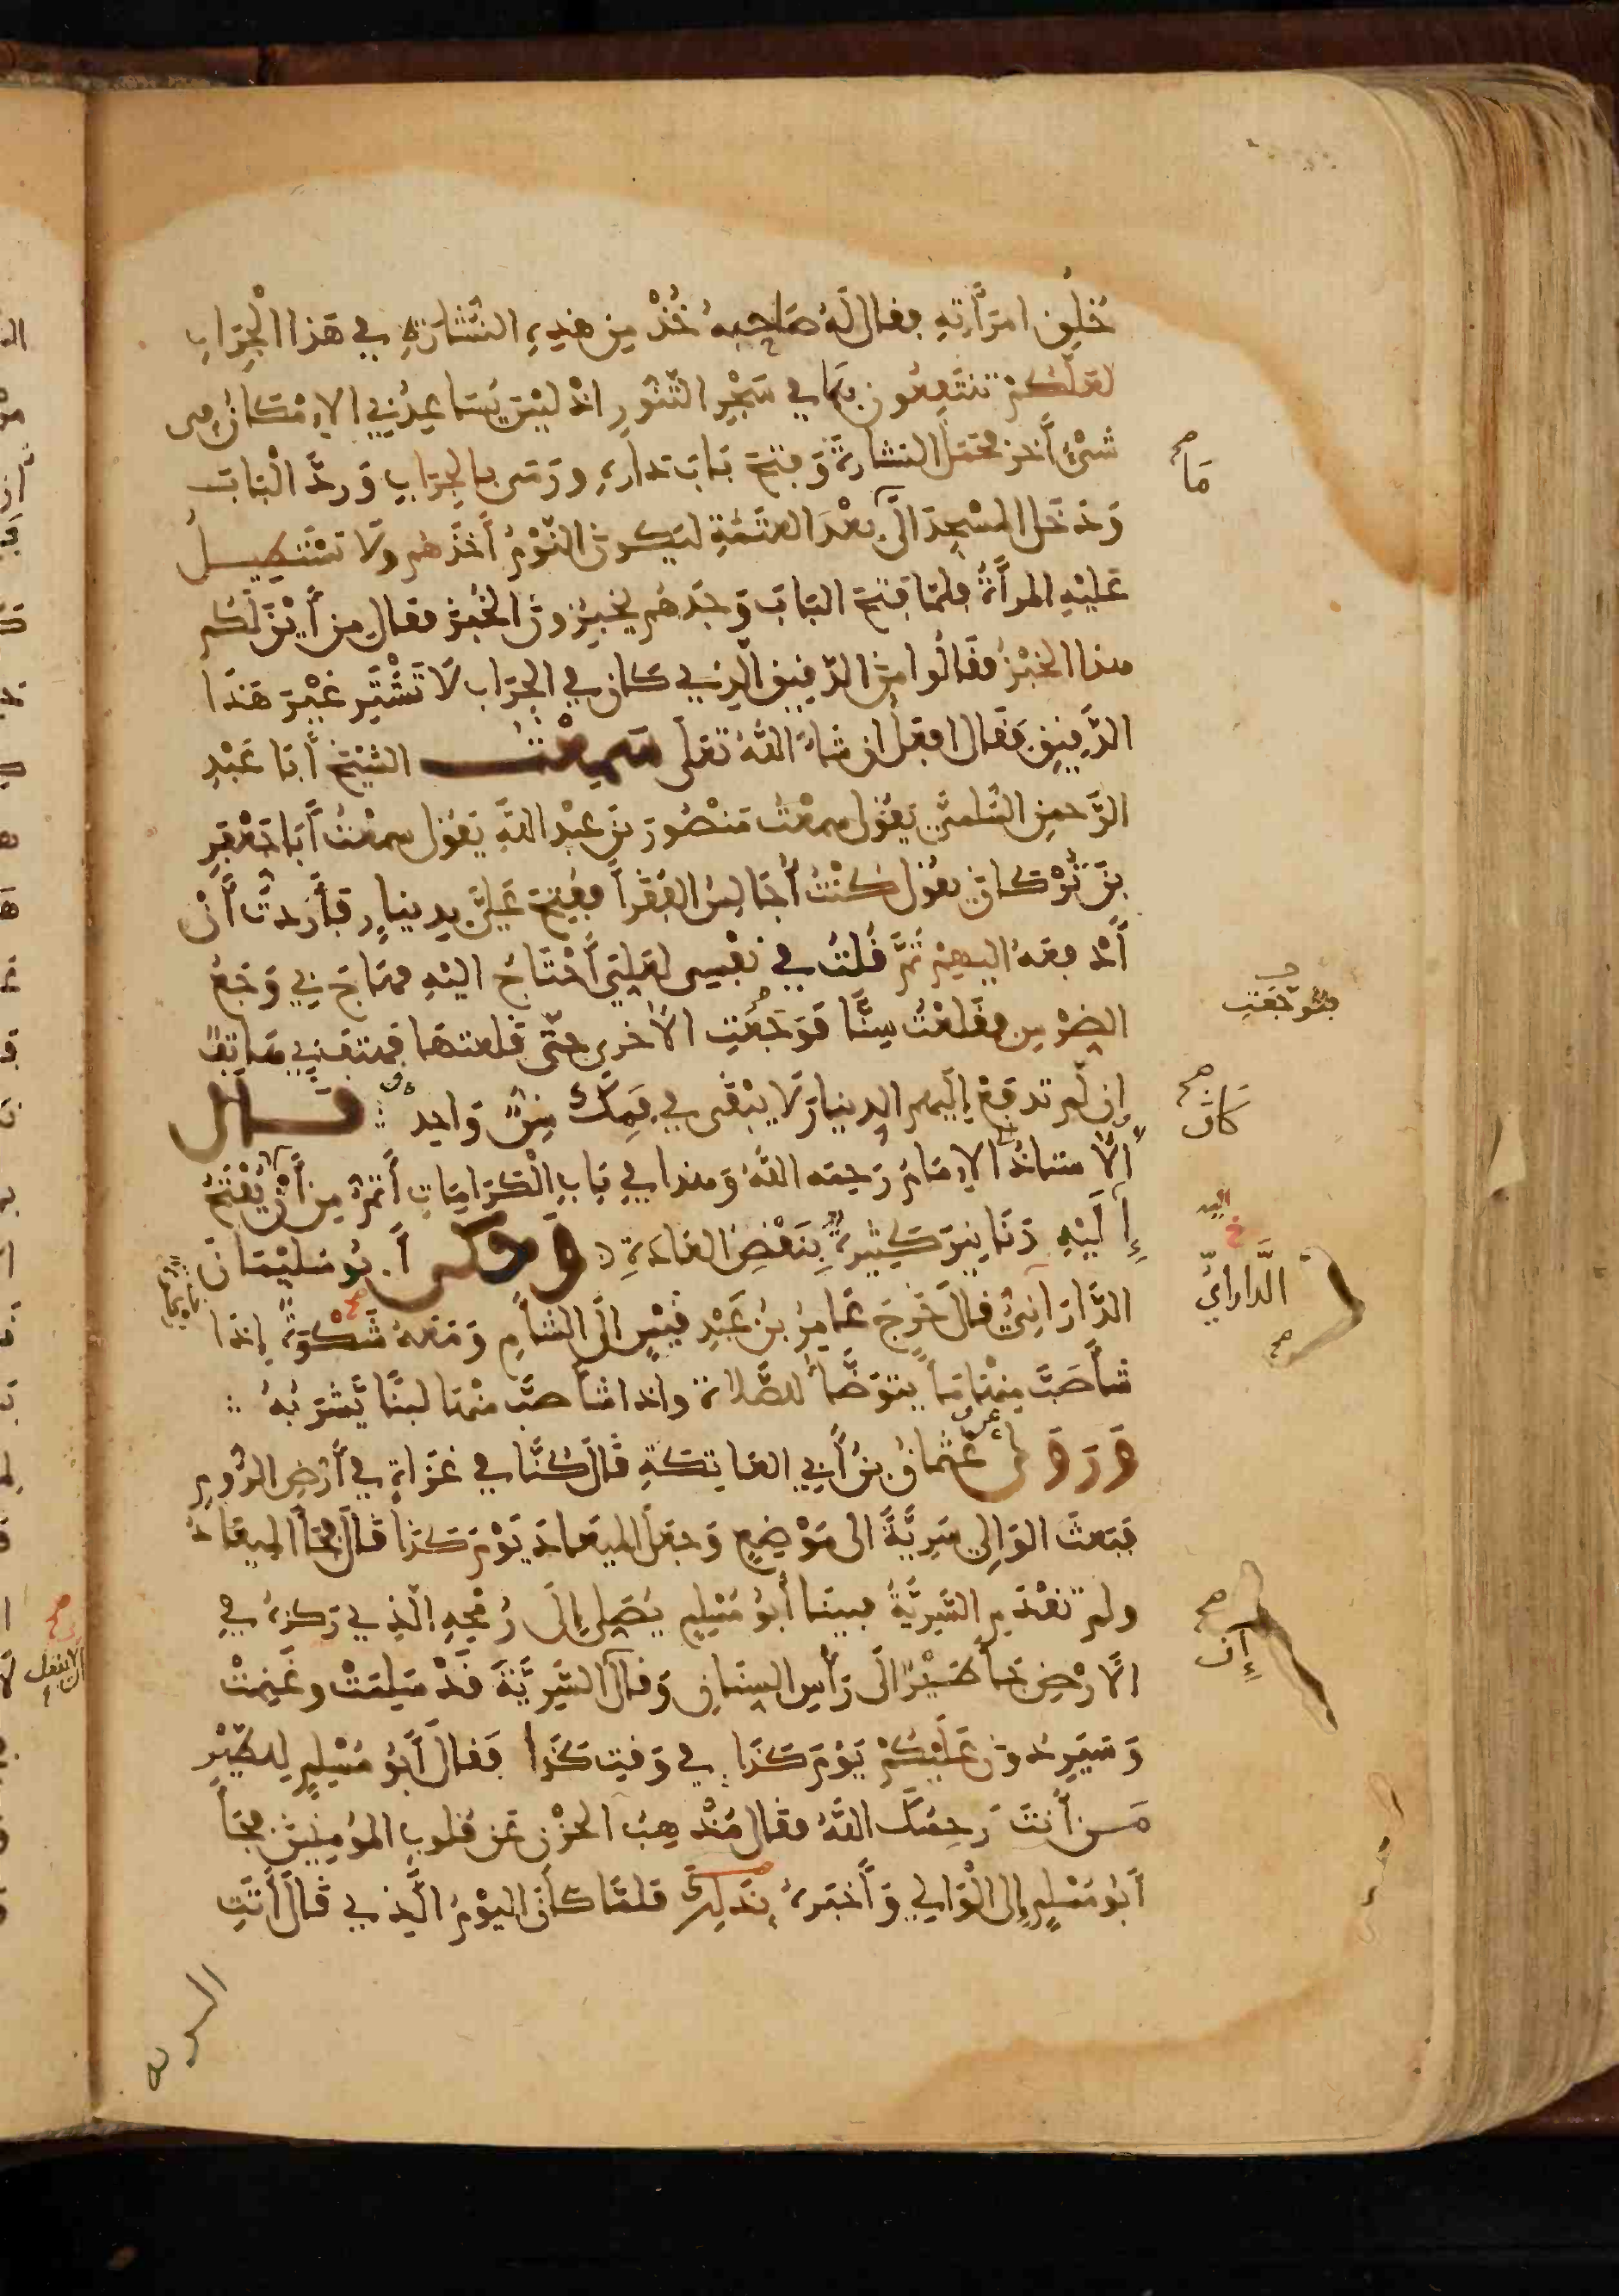 خُلق امرَأته فقال لَهُ صَاحبهُ خُذْ من هذه النُّشارَةِ في هَذا الْجِرَابِ
لعَلَّكمْ تنتَفِعُون بهَا في سَجْرِ التَّنُّورِ اذْ ليْسَ يُسَاعِدُني الإمْكانُ في
شَىْءٍ أَخرَ فحَمَلَ النشارةَ وَفتحَ بَابَ دَاره ورَمَى بالجِرَابِ وَردَّ الْبَابَ
وَدَخَل المسْجِدَ الَى بعْدَ العتَمَةِ ليَكونَ النَّوْمُ أَخَذَهُم ولَا تسْتَطيـــلُ
عَليْهِ المرأَةُ فلمَّا فتحَ البَابَ وَجَدَهُم يخْبِزُونَ الْخُبْزَ فقال مِن أَيْنَ لَكُم
هذا الخبْزُ فقَالُوا منَ الدَّقيقِ الَّذِي كانَ في الجِرَاب لَا تَشْتَرِ غيْرَ هَذَا
الدَّقيقِ فَقَال افعَلُ ان شاءَ اللهُ تعَلَى سَمِعْتُ الشيْخَ أَبَا عَبْدِ
الرَّحمنِ السُّلميَّ يَقُول سمعْتُ مَنْصُورَ بنَ عبْدِ اللهِ يَقُول سمعْتُ أَبَا جَعْفَرِ
بنَ بَرْكانَ يقُول كنْتُ أُجَالِسُ الفُقَرَاَ ففُتِحَ عَليَّ بدينارٍ فأَرَدتُّ أَنْ
أَدْفعَهُ اليهِمْ ثُمَّ قُلتُ في نَفْسِى لعَلِّي أَحْتَاجُ اليْهِ فهَاجَ بي وَجَعُ
الضرْسِ فقَلعْتُ سِنًّا فَوَجَعَتِ الأُخرى حتَّى قلعتهَا فهتَفَ بي هَاتفٌ
إن لَّم تدفَعْ إليهم الدينارَ لَا يَبْقَى في فَمِكَ سِنٌّ وَاحِد قَــال
الأُستاذُ الإمَامُ رَحِمَه اللهُ وَهذا في بَابِ الْكرَامَاتِ أَتَمُّ مِن أَنْ يُّفْتَحَ
إِلَيْهِ دَنَانِيرَ كثِيرةً بِنَقْضِ العَادَةِ وَحكى أَبُو سُليْمَانَ
الدَّارَانيُّ قالَ خَرَجَ عَامِرُ بنُ عَبْدِ قيْسٍ الَى الشَأمِ وَمَعهُ شَكْوَةٌ إذَا
شَأَ صَبَّ مِنْهَا مَأً يَتوَضَّأُ للصَّلاة وإذا شَأَ صَبَّ منْهَا لبنًا يَّشْرَبُهُ
وَرَوَى عُثمَانُ بنُ أَبي العَاتِكَةِ قالَ كُنَّا في غَزَاةٍ في أَرْضِ الرُّومِ
فبَعثَ الوَالِي سَرِيَّةً الى مَوْضِعٍ وَجعَلَ الميعَادَ يَوْمَ كذَا قَالَ فجَأَ الميعَادُ
ولم تَقْدَمِ السَّرِيَّةُ فبينَا أَبُو مُسْلِمٍ يُصَلِّي إلَى رُمْحِهِ الَّذِي رَكزَهُ في
الأَرْضِ جَأَ طَيْرٌ الَى رَأْسِ السِّنَانِ وَقالَ السَّرِيَّةَ قَدْ سَلِمَتْ وغَنِمَتْ
وَسَيَرِدُونَ عَلَيْكُمْ يَوْمَ كذَا في وَقتِ كذا فقَالَ أَبُو مُسْلِمٍ لِلطَّيْرِ
مَـن أَنتَ رَحِمَكَ اللهُ فقَال مُذْهِبُ الحُزْنِ عَن قُلوبِ المُؤمِنينَ فجَأَ
أَبُو مُسْلِمٍ إلى الْوَالِي وَأَخبَرهُ بذَلِكَ فَلمَّا كانَ اليَوْمُ الَّذِي قَالَ أَتَتِ
السرية
مَا صح
فتوَجَعَتِ
كانَ صح
اليه خ
الدَّارَانيّ صح
إنَّ صح